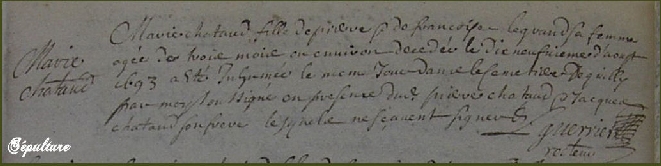 Marie chataud fille de pierre & de francoise legrand sa femme
Marie
agée des trois mois ou environ decedée le die neufuieme d'aoust
chataud
1693 a esté Inhumée le meme Jour dans le semetiere de quilly
par moy soussigné en presence dud. pierre chataud & Jacques
chataud son frere lesquels ne sçavent signer
guerrier
recteur
Sépulture